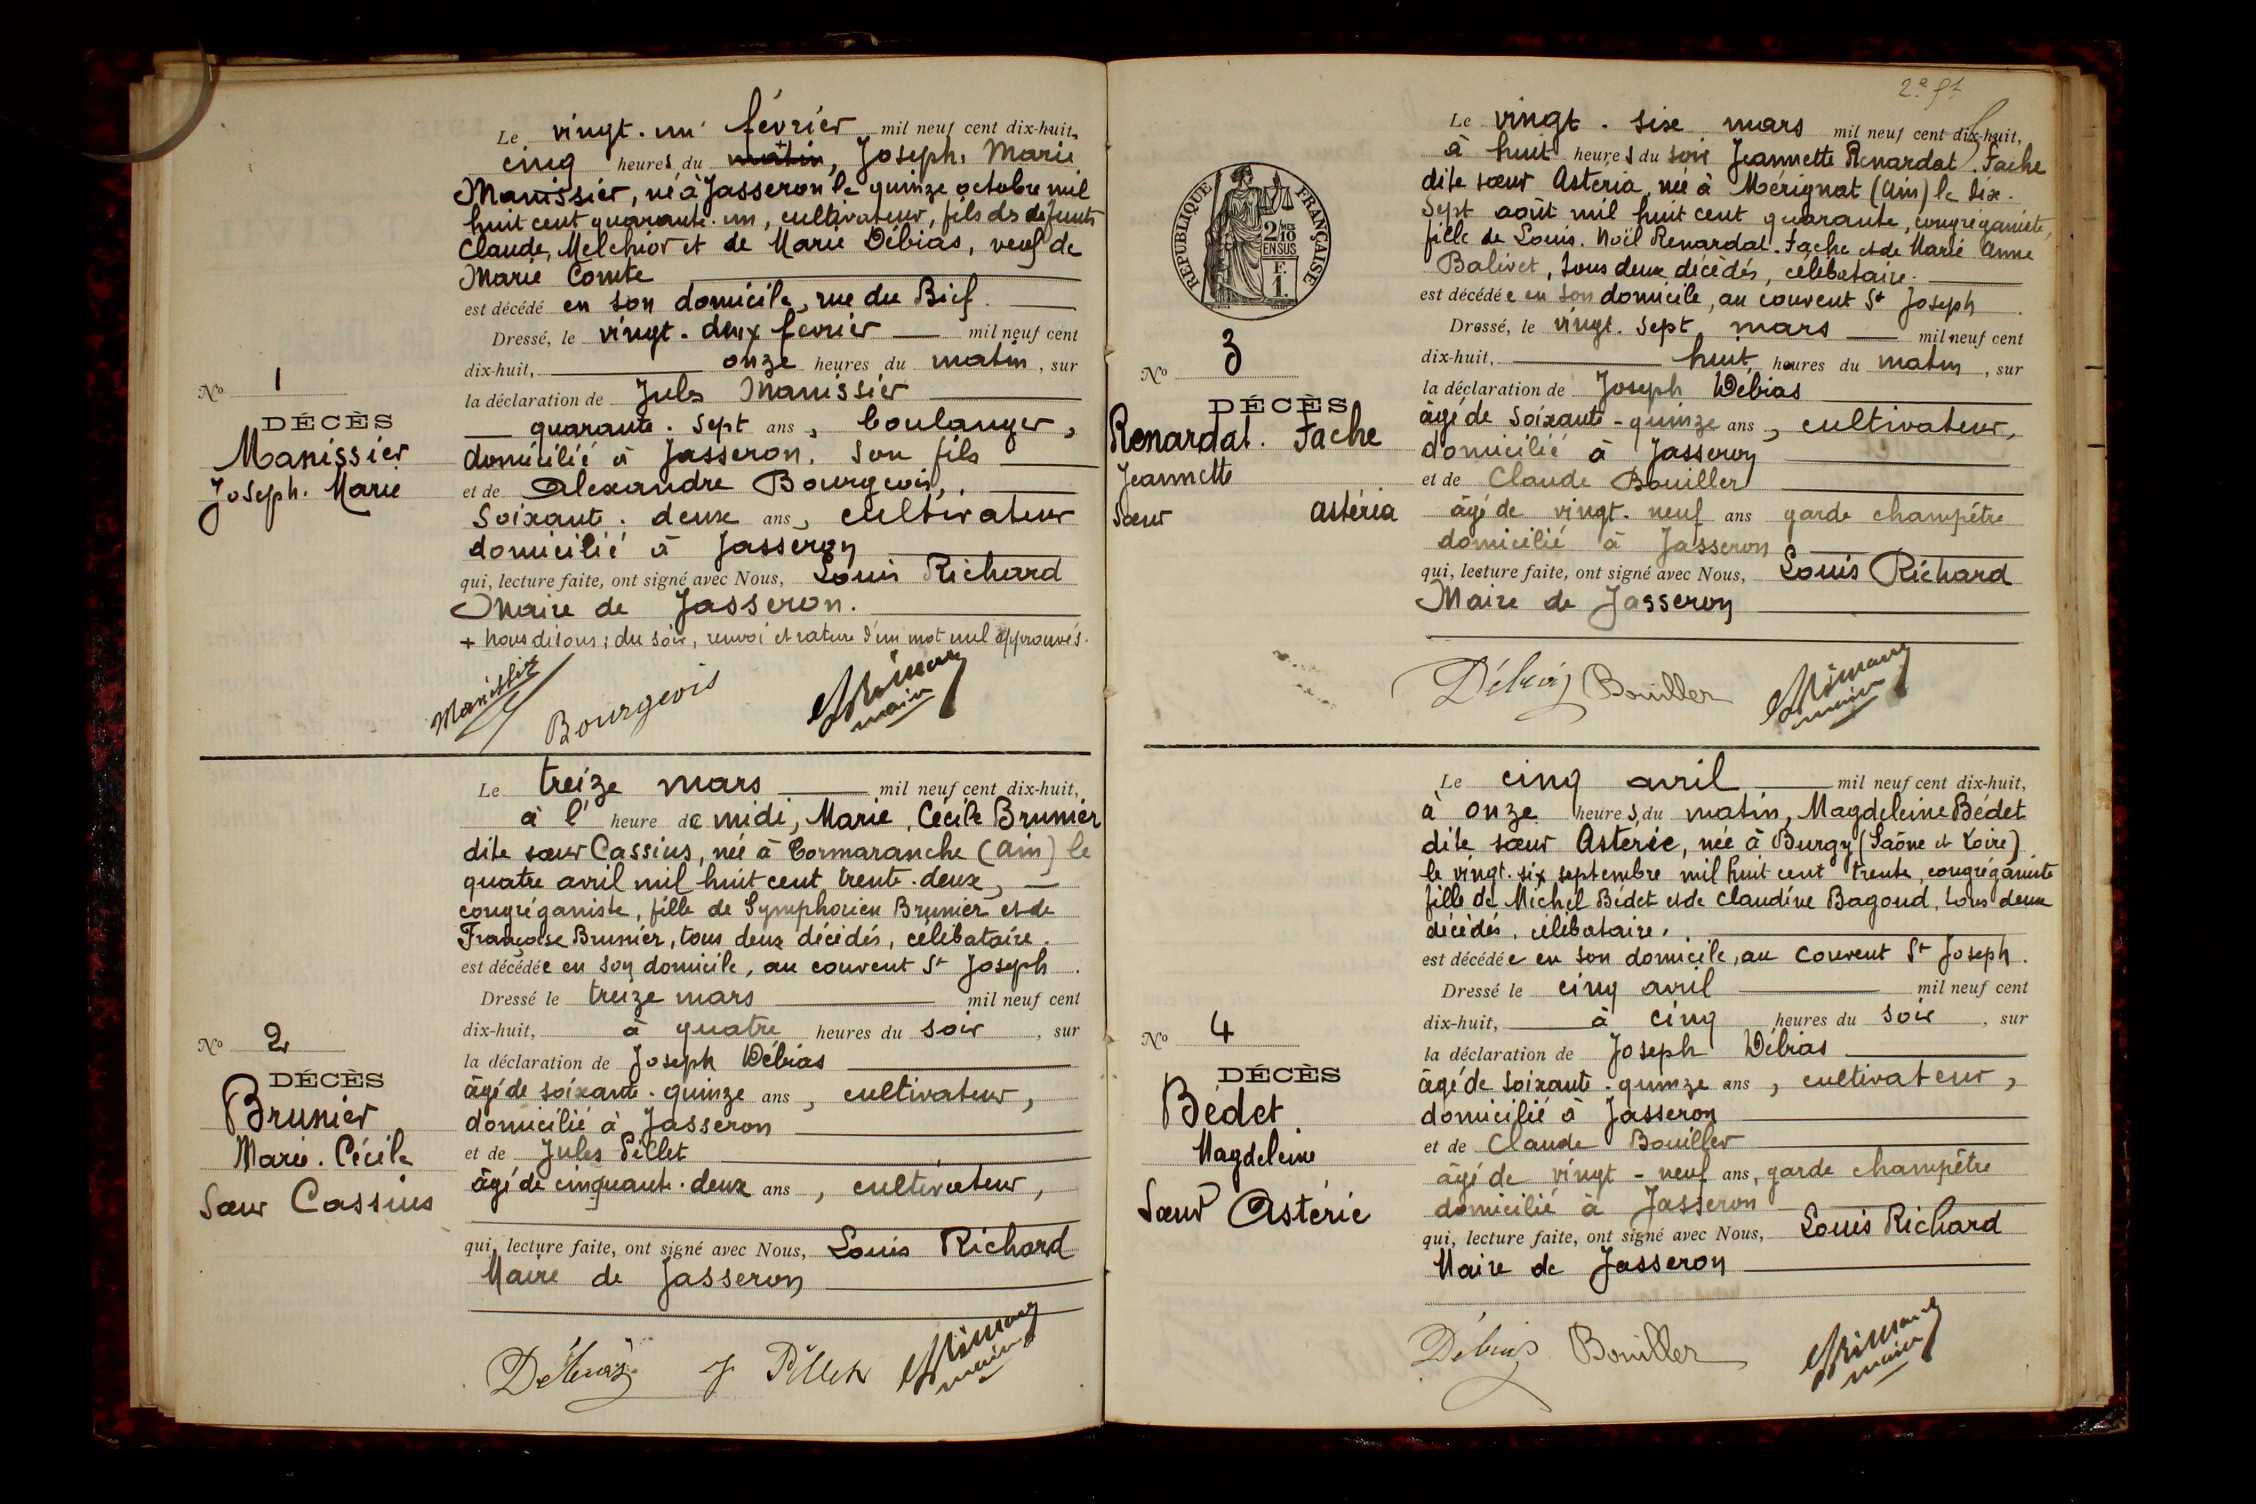 Le vingt. un février mil neuf cent dix-huit,
cinq heures du + matin, Joseph. Marie
Manissier, né à Jasseron le quinze octobre mil
huit cent quarante. un, cultivateur, fils des défunts
Claude, Melchior et de Marie Débias, veuf de
Marie Comte
est décédé en son domicile, rue du Bief.
Dressé, le vingt. deux février mil neuf cent
dix-huit, onze heures du matin, sur
No 1
la déclaration de Jules Manissier
DÉCÈS
quarante. sept ans, boulanger,
Manissier
domicilié à Jasseron. Son fils
Joseph. Marie
et de Alexandre Bourgeois,
soixante. deux ans, cultivateur
domicilié à Jasseron
qui, lecture faite, ont signé avec Nous, Louis Richard
Maire de Jasseron.
+ Nous disons: du soir, renvoi et rature d'un mot nul approuvés.
Manissier
Bourgeois
maire
Le treize mars mil neuf cent dix-huit,
à l' heure de midi, Marie. Cécile Brunier
dite sœur Cassius, née à Cormaranche (Ain) le
quatre avril mil huit cent trente. deux,
congréganiste, fille de Symphorien Brunier et de
Françoise Brunier, tous deux décédés, célibataire.
est décédée en son domicile, au couvent St Joseph.
Dressé le treize mars mil neuf cent
dix-huit, à quatre heures du soir, sur
No 2
la déclaration de Joseph Débias
DÉCÈS
âgé de soixante. quinze ans, cultivateur,
Brunier
domicilié à Jasseron
Marie. Cécile
et de Jules Pillet
Sœur Cassius
âgé de cinquante. deux ans, cultivateur,
qui, lecture faite, ont signé avec Nous, Louis Richard
Maire de Jasseron
Débias J Pillet
maire
Le vingt. six mars mil neuf cent dix-huit,
à huit heures du soir Jeannette Renardat. Fache
dite sœur Asteria, née à Mérignat (Ain) le dix.
sept août mil huit cent quarante, congréganiste,
fille de Louis. Noël Renardat. Fache et de Marie Anne
Balivet, tous deux décédés, célibataire.
est décédée en son domicile, au couvent St Joseph.
RÉPUBLIQUE FRANÇAISE
2/10 EN SUS
F. 1.
Dressé, le vingt. sept mars mil neuf cent
No 3
dix-huit, huit heures du matin, sur
la déclaration de Joseph Débias
DÉCÈS
âgé de soixante-quinze ans, cultivateur,
Renardat. Fache
domicilié à Jasseron
Jeannette
et de Claude Bouiller
Sœur astéria
âgé de vingt. neuf ans garde champêtre
domicilié à Jasseron
qui, lecture faite, ont signé avec Nous, Louis Richard
Maire de Jasseron
Débias Bouiller
maire
Le cinq avril mil neuf cent dix-huit,
à onze heures du matin, Magdeleine Bédet
dite sœur Asterie, née à Burgy (Saône et Loire)
le vingt. six septembre mil huit cent trente, congréganiste
fille de Michel Bédet et de Claudine Bagoud, tous deux
décédés, célibataire.
est décédée en son domicile, au couvent St Joseph.
Dressé le cinq avril mil neuf cent
No 4
dix-huit, à cinq heures du soir, sur
la déclaration de Joseph Débias
DÉCÈS
âgé de soixante. quinze ans, cultivateur,
Bédet
domicilié à Jasseron
Magdeleine
et de Claude Bouiller
Sœur Astérie
âgé de vingt-neuf ans, garde champêtre
domicilié à Jasseron
qui, lecture faite, ont signé avec Nous, Louis Richard
Maire de Jasseron
Débias Bouiller
maire